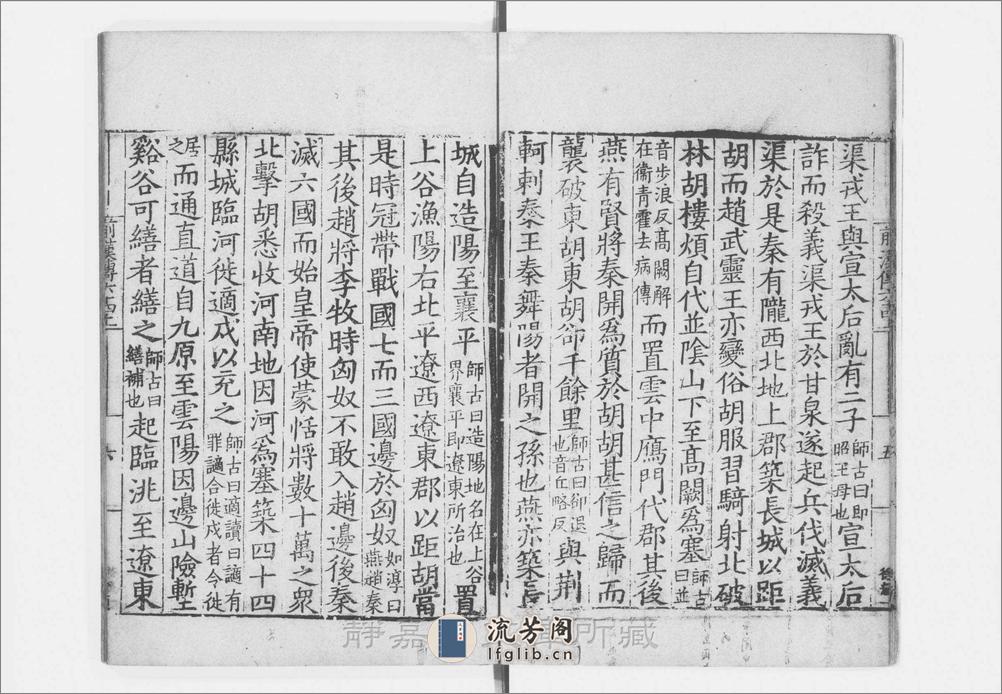 渠戎王與宣太后亂有二子師古曰即昭王母也宣太后
詐而殺義渠戎王於甘泉遂起兵伐滅義
渠於是秦有隴西北地上郡築長城以距
胡而趙武靈王亦變俗胡服習騎射北破
林胡樓煩自代並陰山下至高闕為塞師古曰並
音步浪反高闕解在衞青霍去病傳而置雲中鴈門代郡其後
燕有賢將秦開為質於胡胡甚信之歸而
襲破東胡東胡卻千餘里師古曰卻退也音丘略反與荆
軻刺秦王秦舞陽者開之孫也燕亦築長
城自造陽至襄平師古曰造陽地名在上谷界襄平即遼東所治也置
上谷漁陽右北平遼西遼東郡以距胡當
是時冠帶戰國七而三國邊於匈奴如淳曰燕趙秦
其後趙將李牧時匈奴不敢入趙邊後秦
滅六國而始皇帝使蒙恬將數十萬之眾
北擊胡悉收河南地因河為塞築四十四
縣城臨河徙適戍以充之師古曰適讀曰讁有罪讁合徙戍者令徙
居之而通直道自九原至雲陽因邊山險塹
谿谷可繕者繕之師古曰繕補也起臨洮至遼東
五
六
静嘉
所藏
流芳阁
lfglib.cn